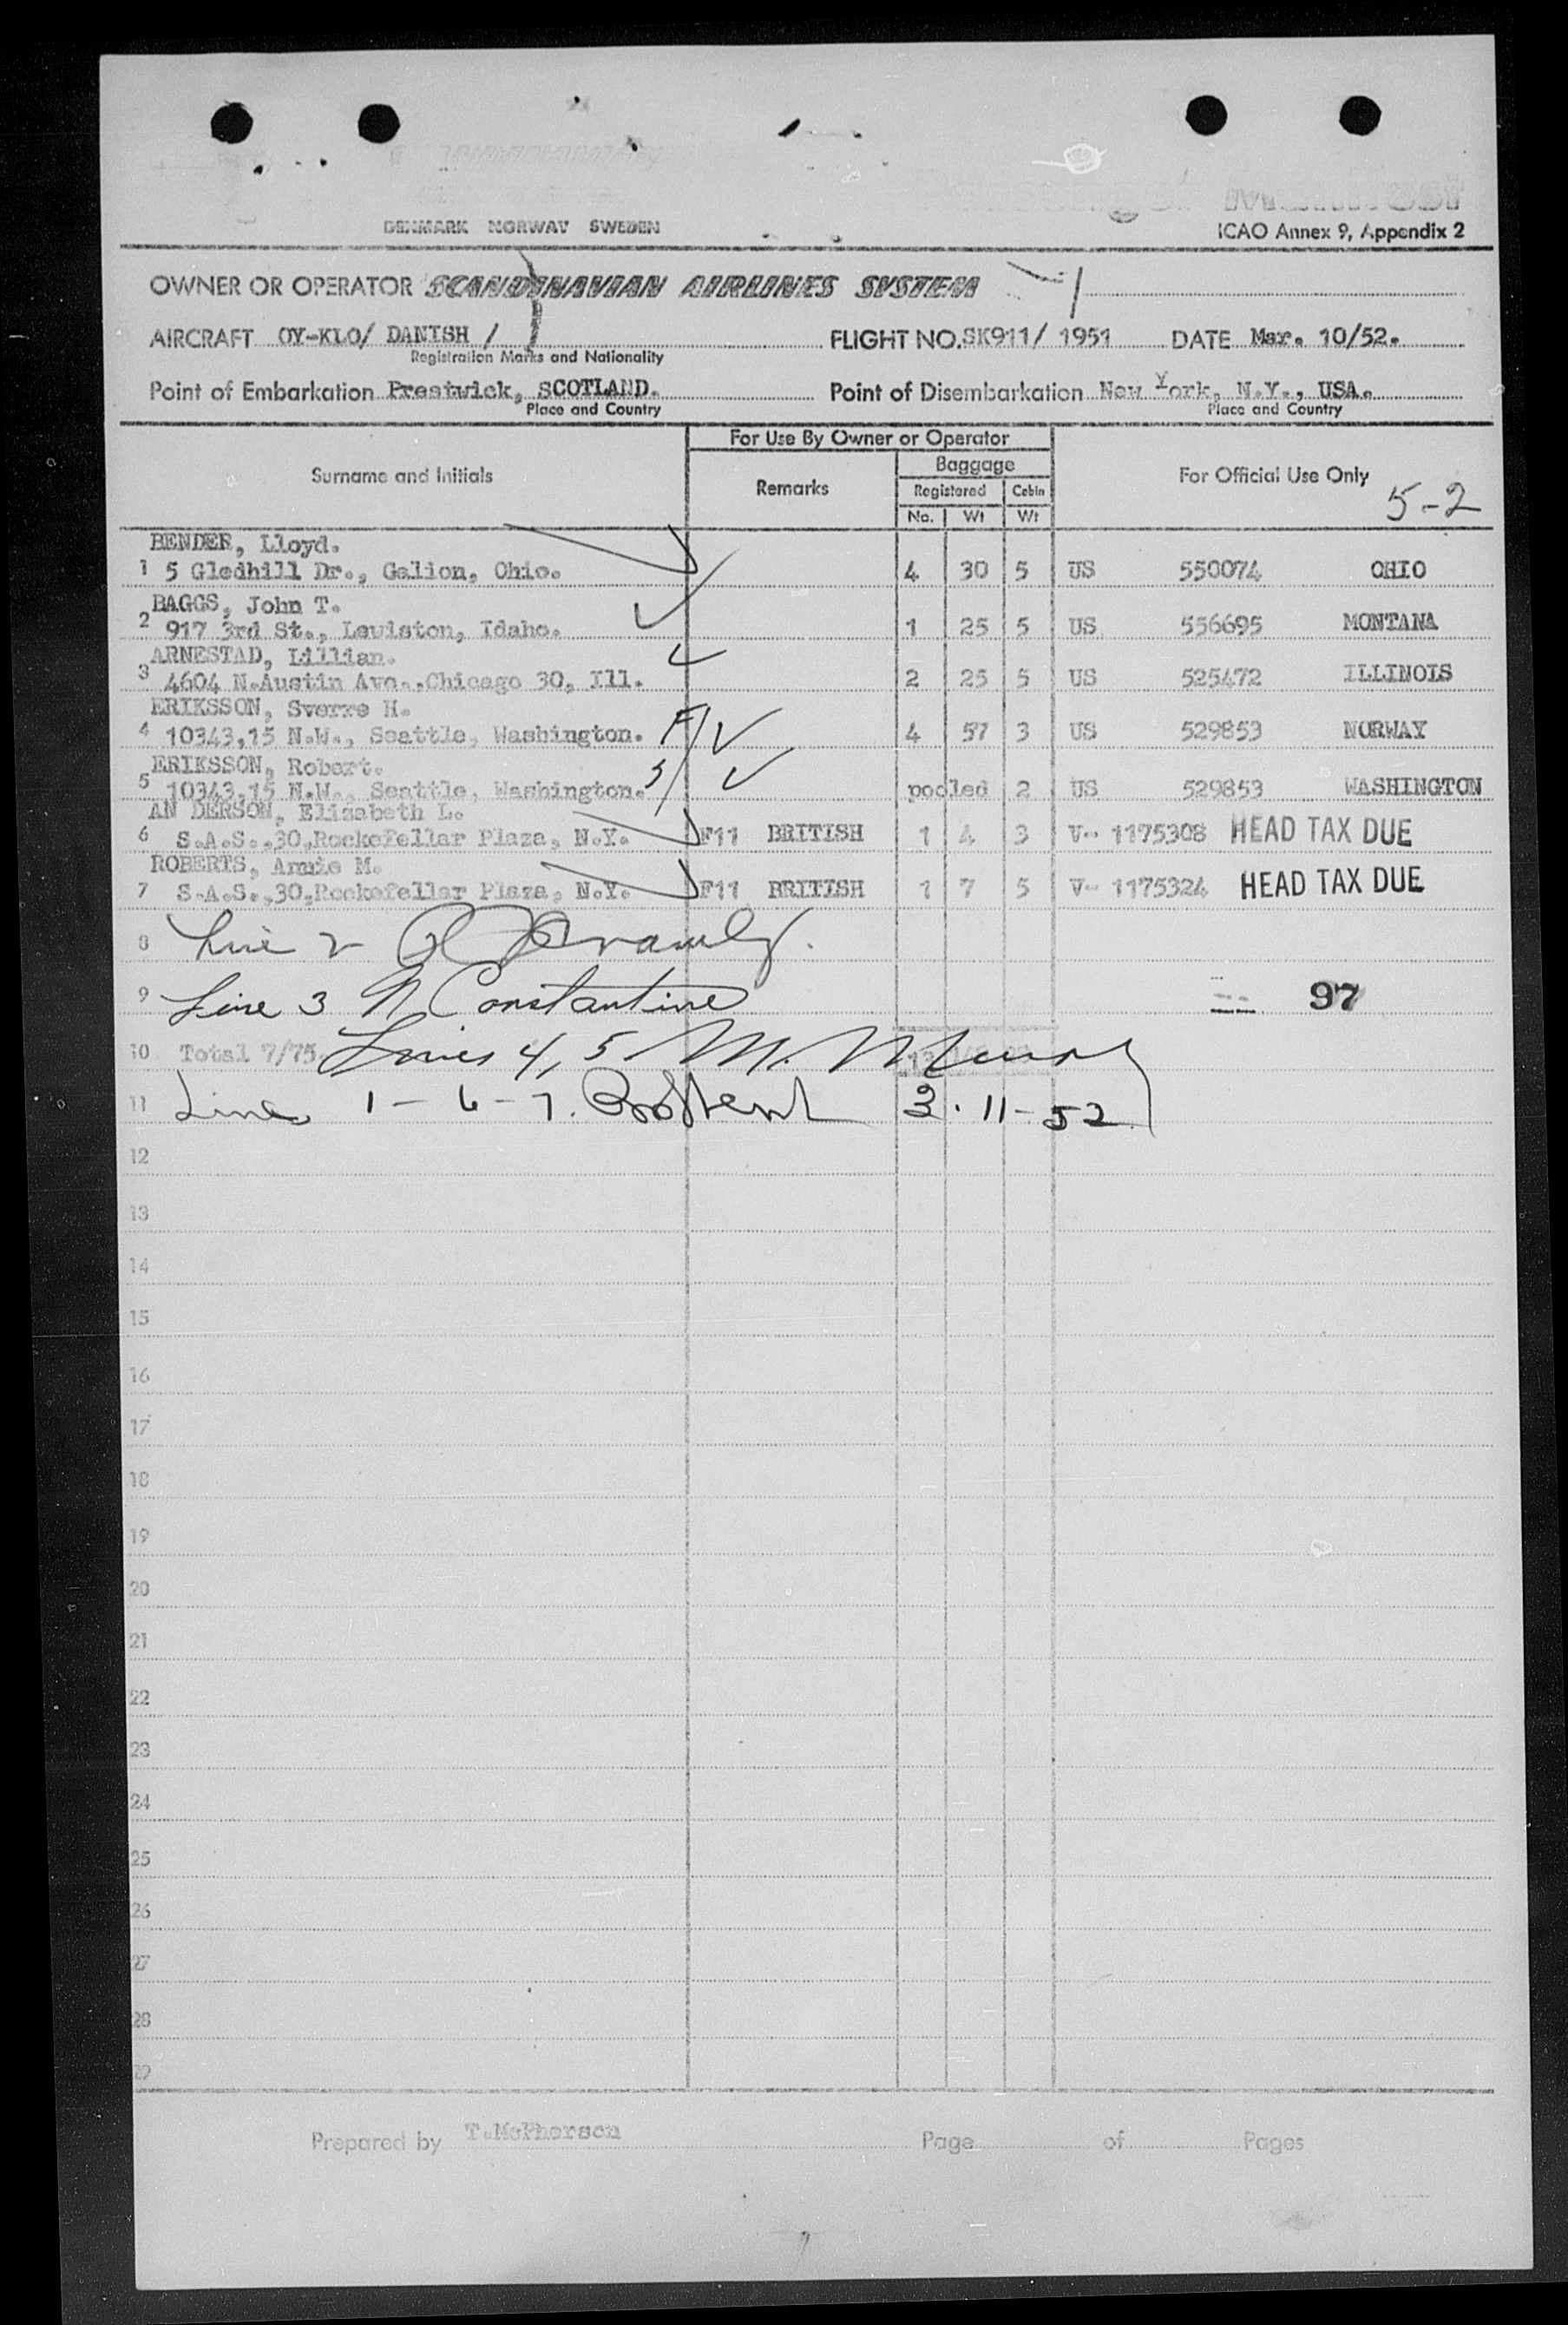 Manifest
DENMARK NORWAY SWEDEN
ICAO Annex 9, Appendix 2
OWNER OR OPERATOR SCANDINAVIAN AIRLINES SYSTEM
AIRCRAFT OY-KLO/ DANISH / FLIGHT NO. SK911/ 1951 DATE Mar. 10/52.
Registration Marks and Nationality
Point of Embarkation Prestwick, SCOTLAND. Point of Disembarkation New York, N.Y., USA.
Place and Country Place and Country
For Use By Owner or Operator
Surname and Initials Remarks Baggage For Official Use Only
Registered Cabin
No. Wt Wt
5-2
BENDER, Lloyd.
1 5 Gledhill Dr., Galion, Ohio. 4 30 5 US 550074 OHIO
BAGGS, John T.
2 917 3rd St., Lewiston, Idaho. 1 25 5 US 556695 MONTANA
ARNESTAD, Lillian.
3 4604 N.Austin Ave.,Chicago 30, Ill. 2 25 5 US 525472 ILLINOIS
ERIKSSON, Sverre H.
4 10343,15 N.W., Seattle, Washington. F/ 4 57 3 US 529853 NORWAY
ERIKSSON, Robert.
5 10343,15 N.W., Seattle, Washington. 5/ pooled 2 US 529853 WASHINGTON
AN DERSON, Elizabeth L.
6 S.A.S.,30,Rockefellar Plaza, N.Y. F11 BRITISH 1 4 3 V- 1175308 HEAD TAX DUE
ROBERTS, Annie M.
7 S.A.S.,30,Rockefellar Plaza, N.Y. F11 BRITISH 1 7 5 V- 1175324 HEAD TAX DUE
8 Line 2
9 Line 3 N Constantine 97
10 Total 7/75 Lines 4, 5 M.
11 Lines 1 - 6 - 7. 3. 11 - 52
12
13
14
15
16
17
18
19
20
21
22
23
24
25
26
27
28
29
Prepared by T.McPherson Page of Pages